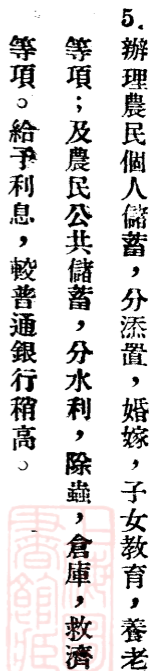 5.辦理農民個人儲蓄，分添置，婚嫁，子女教育，養老
等項；及農民公共儲蓄，分水利，除蟲，倉庫，救濟
等項。給予利息，較普通銀行稍高。